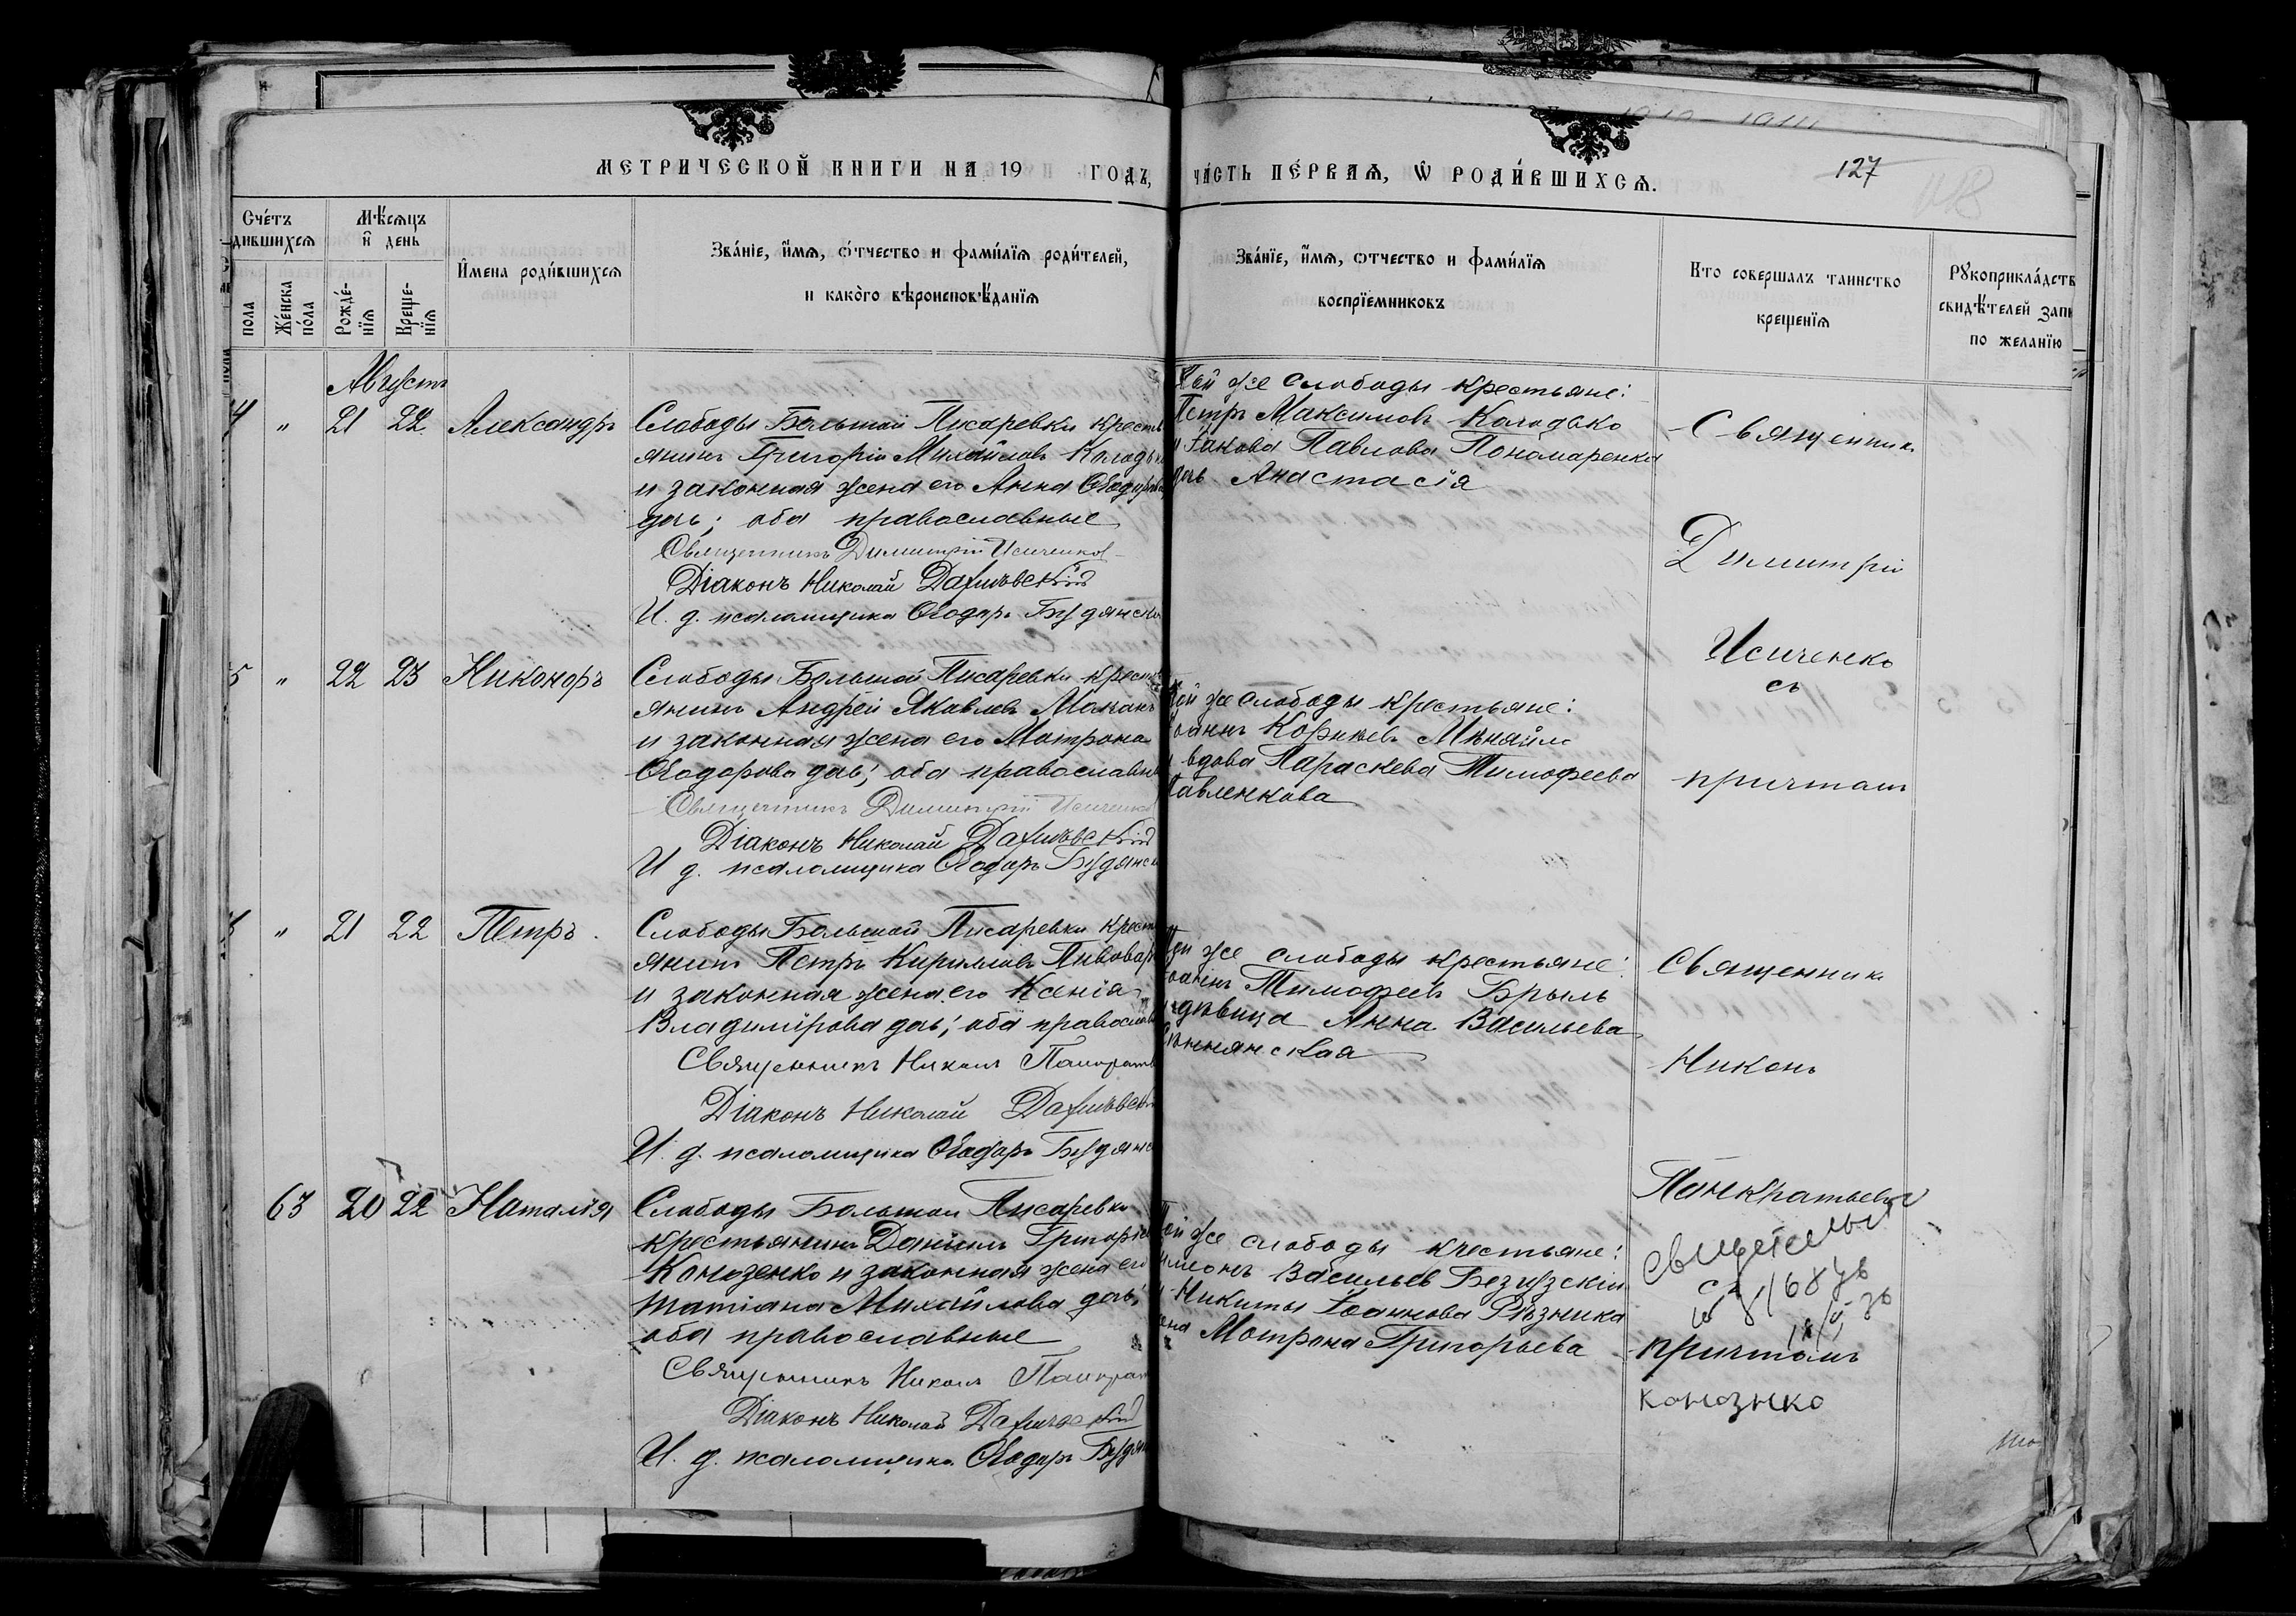 МЕТРИЧЕСКОЙ КНИГИ НА 19 ГОДЪ,
ЧА́СТЬ ПЕ́РВАѦ, Ѡ҆ РОДИ́ВШИХСѦ.
127
Сче́тъ
дившихсѧ
Мѣ́сѧцъ
и҆ день
пола
Же́нска
по́ла
Рожде́-
нїѧ
Креще-
нїѧ
И҆мена роди́вшихсѧ
Зва́нїе, и҆́мѧ, ѻ҆́тчество и фами́лїѧ роди́телей,
и како́го вѣроисповѣ́данїѧ
Зва́нїе, и҆́мѧ, ѻтчество и фами́лїѧ
воспрїемниковъ
Кто совершалъ таинство
крещенїѧ
Рꙋкоприкла́дств
свидѣ́телей запи
по желанїю
Августъ
4 " 21 22 Александръ
Слободы Большой Писаревки кресть
янинъ Григорій Михайловъ Колодь
и законная жена его Анна Ѳеодоров
дочь; оба православные
Священникъ Димитрій Исиченков
Діаконъ Николай
И. д. псаломщика Ѳеодоръ Будянск
Той же слободы крестьяне:
Петръ Максимовъ Колодько
и Іакова Павлова Пономаренка
дочь Анастасія
Священникъ
Димитрій
Исиченко
съ
причтомъ
5 " 22 23 Никоноръ
Слободы Большой Писаревки крест
янинъ Андрей Яковлевъ
и законная жена его Матрона
Ѳеодорова дочь; оба православн
Священникъ Димитрій Исиченко
Діаконъ Николай
И д. псаломщика Ѳеодоръ Будянск
Той же слободы крестьяне:
Іоаннъ Корніевъ
и вдова Параскева Тимофеева
Павленкова
" 21 22 Петръ
Слободы Большой Писаревки крест
янинъ Петръ Кирилловъ Пивовар
и законная жена его Ксенія
Владимірова дочь; оба православ
Священникъ Никонъ Панкрать
Діаконъ Николай
И. д. псаломщика Ѳеодоръ Будянс
Той же слободы крестьяне:
Іоаннъ Тимофеевъ Брыль
и девица Анна Васильева
Священникъ
Никонъ
Панкратьевъ
63 20 22 Наталія
Слободы Большой Писаревки
крестьянинъ Даніилъ Григорьев
Конозенко и законная жена его
Татіана Михайлова дочь;
оба православные
Священникъ Никонъ Панкрат
Діаконъ Николай
И. д. псаломщика Ѳеодоръ Будян
Той же слободы крестьяне:
Симеонъ Васильев Безрузскій
и Никиты Іоаннова Рѣзника
жена Матрона Григорьева
съ
причтомъ
Конознко